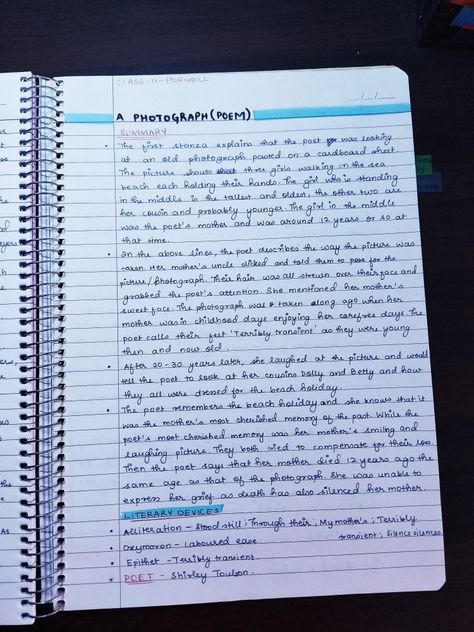 CLASS-11-HORNBILL
A PHOTOGRAPH (POEM)
SUMMARY
• The first stanza explains that the poet was looking
at an old photograph pasted on a cardboard sheet.
The picture shows three girls walking in the sea
beach each holding their hands. The girl who is standing
in the middle is the tallest and oldest, the other two are
her cousin and probably younger. The girl in the middle
was the poet's mother and was around 12 years or so at
that time.
• In the above lines, the poet describes the way the picture was
taken. Her mother's uncle clicked and told them to pose for the
picture/photograph. Their hair was all strewn over their face and
grabbed the poet's attention. She mentioned her mother's
sweet face. The photograph was taken along ago when her
mother was in childhood days enjoying her carefree days. The
poet calls their feet 'Terribly transient' as they were young
then and now old.
• After 20-30 years later, she laughed at the picture and would
tell the poet to look at her cousins Dolly and Betty and how
they all were dressed for the beach holiday.
• The poet remembers the beach holiday and she knows that it
was the mother's most cherished memory of the past. While the
poet's most cherished memory was her mother's smiling and
laughing picture. They both tried to compensate for their loss.
Then the poet says that her mother died 12 years ago the
same age as that of the photograph. She was unable to
express her grief as death has also silenced her mother.
LITERARY DEVICES
• Alliteration - Stood still; Through their; My mother's; Terribly
transient; Silence silences.
• Oxymoron - laboured ease
• Epithet - Terribly transient.
• POET - Shirley Toulson.